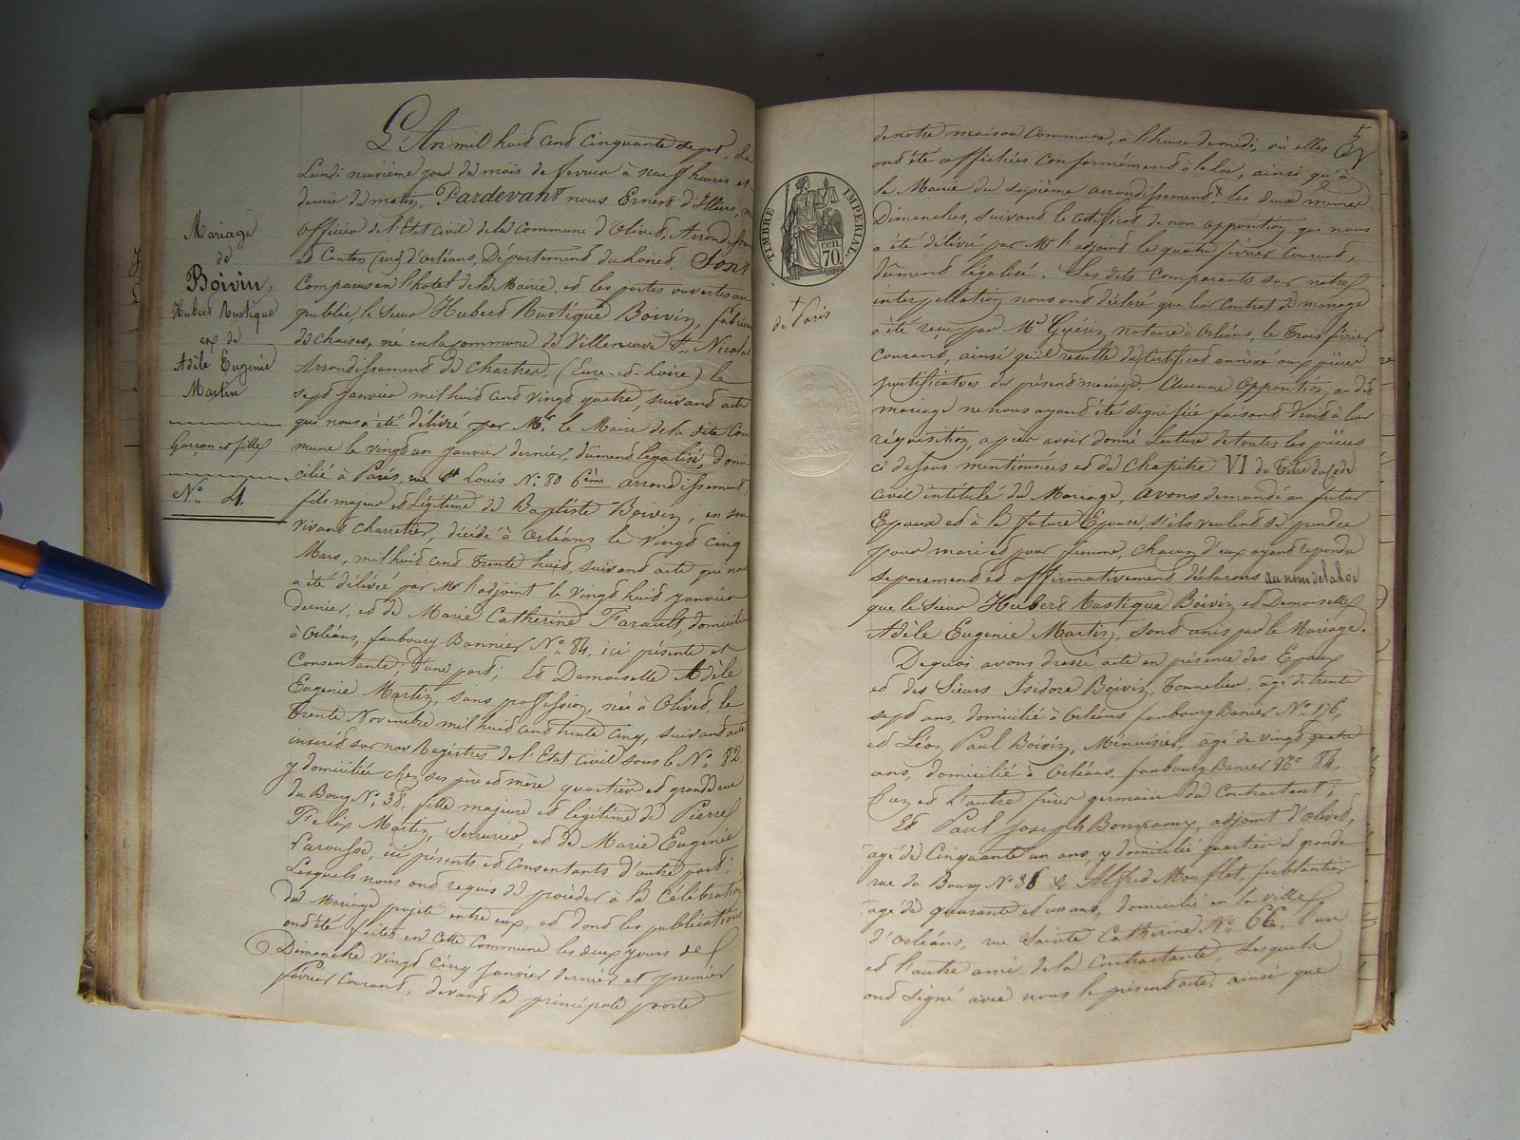 Mariage
de
Boivin,
Hubert Rustique
et de
Adèle Eugénie
Martin
Garçon et fille
N° 4
L'An mil huit cent cinquante sept, le
Lundi neuvième jour du mois de février à neuf heures et
demie du matin, Pardevant nous Ernest d'Illiers,
officier de l'Etat Civil de la Commune d'Olivet, Arrond.
et Canton sud d'Orléans, Département du Loiret, Sont
Comparus en l'hotel de la Mairie, et les portes ouvertes au
public, le sieur Hubert Rustique Boivin, fabricant
de chaises, né en la commune de Villeneuve St Nicolas
Arrondissement de Chartres, (Eure-et-Loire) le
sept janvier mil huit cent vingt quatre, suivant acte
qui nous a été délivré par Mr le Maire de la dite Com
mune le vingt un janvier dernier, dument légalisé, domi
cilié à Paris, rue St Louis N° 80 6ème arrondissement,
fils majeur et légitime de Baptiste Boivin, en son
vivant charretier, décédé à Orléans le vingt cinq
Mars, mil huit cent trente huit, suivant acte qui nous
a été délivré par Mr l'adjoint le vingt huit janvier
dernier, et de Marie Catherine Farault, domiciliée
à Orléans, faubourg Bannier N° 84, ici présente et
Consentante, d'une part; Et Demoiselle Adèle
Eugénie Martin, sans profession, née à Olivet, le
trente Novembre mil huit cent trente cinq, suivant acte
inscrit sur nos Registres de l'Etat Civil sous le N° 82
y domiciliée chez ses père et mère quartier et grande rue
du Bourg N° 38, fille majeure et légitime de Pierre
Félix Martin, Serrurier, et de Marie Eugénie
Parousse, ici présents et Consentants d'autre part;
Lesquels nous ont requis de procéder à la Célébration
du Mariage projeté entre eux, et dont les publications
ont été faites en cette Commune les deux jours de
Dimanche vingt cinq janvier dernier et premier
février courant, devant la principale porte
5
TIMBRE IMPERIAL
CEN. 70
+
de Paris
de notre maison Commune, à l'heure de midi, où elles
ont été affichées conformément à la loi, ainsi qu'à
la Mairie du sixième arrondissement + les deux mêmes
Dimanches, suivant le certificat de non opposition qui nous
a été délivré par Mr l'adjoint le quatre février courant,
dûment légalisé. Les dits Comparants sur notre
interpellation nous ont déclaré que leur Contrat de mariage
a été reçu par Me notaire à Orléans, le trois février
courant, ainsi qu'il résulte du Certificat annexé aux pièces
justificatives du présent mariage. Aucune opposition au dit
mariage ne nous ayant été signifiée faisant droit à leur
réquisition, après avoir donné lecture de toutes les pièces
ci dessus mentionnées et du Chapitre VI du Titre du Code
civil intitulé du Mariage, avons demandé au futur
Epoux et à la future Epouse, s'ils veulent se prendre
pour mari et pour femme, chacun d'eux ayant répondu
séparément et affirmativement déclarons au nom de la loi
que le sieur Hubert Rustique Boivin, et Demoiselle
Adèle Eugénie Martin, sont unis par le Mariage.
De quoi avons dressé acte en présence des Epoux
et des Sieurs Isidore Boivin, Tonnelier, agé de trente
sept ans, domicilié à Orléans faubourg Banier N° 176,
et Léon Paul Boivin, Menuisier, agé de vingt quatre
ans, domicilié à Orléans, faubourg Banier N° 84,
l'un et l'autre frère germain du Contractant,
Et Paul Joseph adjoint d'Olivet,
agé de Cinquante un ans, y domicilié quartier et grande
rue du Bourg N° 36 & Alfred Mouflet,
agé de quarante et un ans, domicilié en la ville
d'Orléans, rue Sainte Catherine N° 66, l'un
et l'autre ami de la Contractante, Lesquels
ont signé avec nous le présent acte, ainsi que